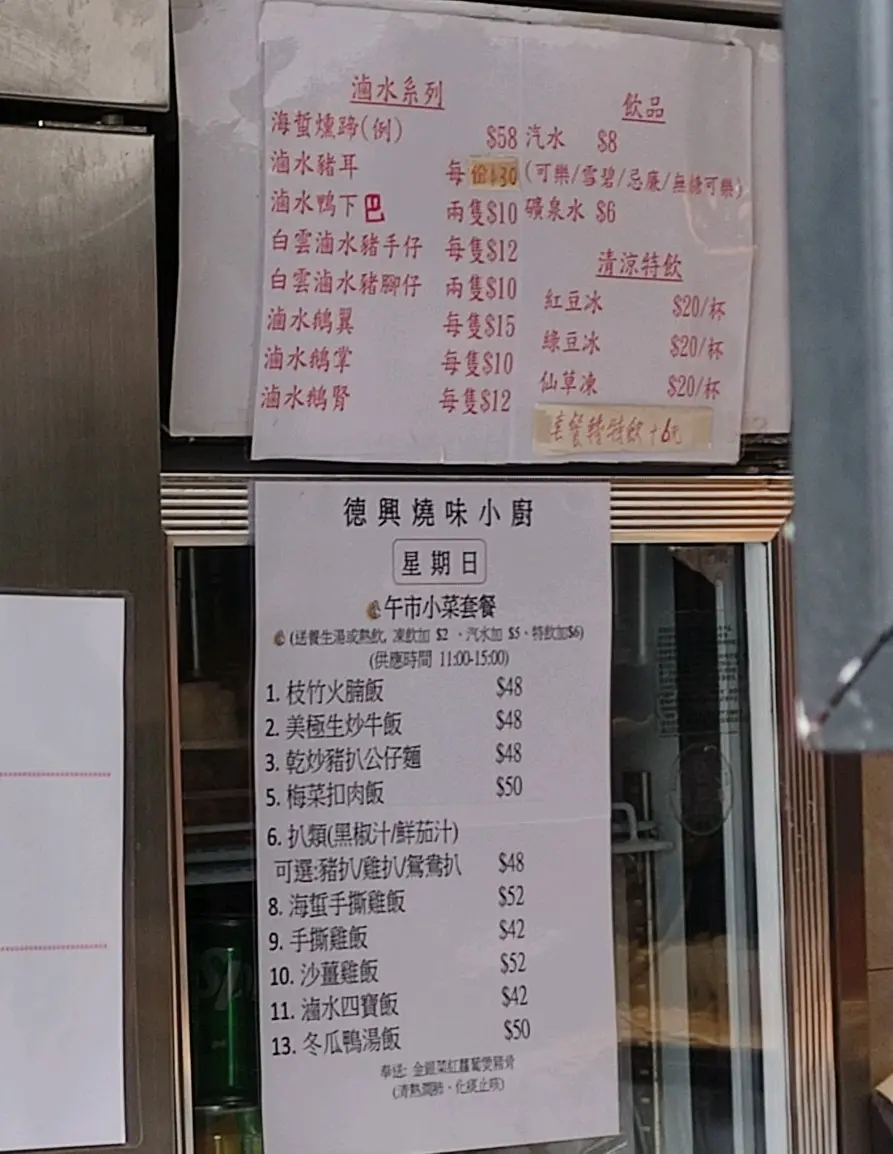 滷水系列
海蜇燻蹄(例) $58
滷水豬耳 每份$30
滷水鴨下巴 兩隻$10
白雲滷水豬手仔 每隻$12
白雲滷水豬腳仔 兩隻$10
滷水鵝翼 每隻$15
滷水鵝掌 每隻$10
滷水鵝腎 每隻$12
飲品
汽水 $8
(可樂/雪碧/忌廉/無糖可樂)
礦泉水 $6
清涼特飲
紅豆冰 $20/杯
綠豆冰 $20/杯
仙草凍 $20/杯
套餐轉特飲+6元
德興燒味小廚
星期日
午市小菜套餐
(送餐生湯或熱飲, 凍飲加 $2、汽水加 $5、特飲加$6)
(供應時間 11:00-15:00)
1. 枝竹火腩飯 $48
2. 美極生炒牛飯 $48
3. 乾炒豬扒公仔麵 $48
5. 梅菜扣肉飯 $50
6. 扒類(黑椒汁/鮮茄汁)
可選:豬扒/雞扒/鴛鴦扒 $48
8. 海蜇手撕雞飯 $52
9. 手撕雞飯 $42
10. 沙薑雞飯 $52
11. 滷水四寶飯 $42
13. 冬瓜鴨湯飯 $50
奉送: 金銀菜紅蘿蔔煲豬骨
(清熱潤肺、化痰止咳)